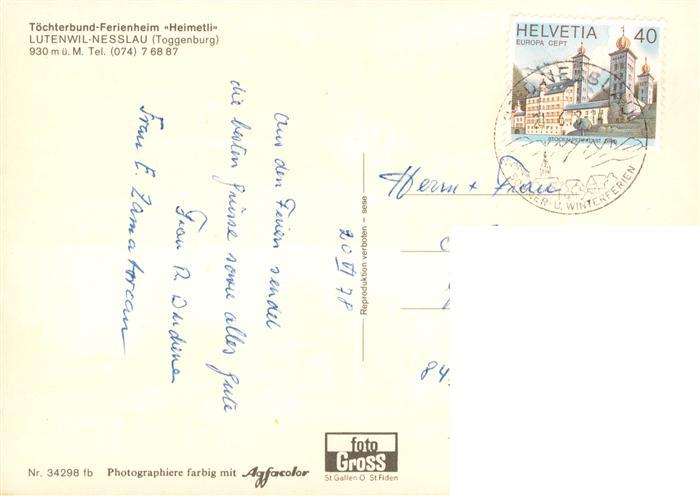 Töchterbund-Ferienheim «Heimetli»
LUTENWIL-NESSLAU (Toggenburg)
930 m ü. M. Tel. (074) 7 68 87
HELVETIA 40
EUROPA CEPT
U. WINTERFERIEN
Aus den Ferien sendet
die besten Grüsse sowie alles Gute
Frau R.
Frau E.
20 VI 78
Reproduktion verboten – sese
Herrn + Frau
84
Nr. 34298 fb Photographiere farbig mit Agfacolor
foto
Gross
St.Gallen O St.Fiden